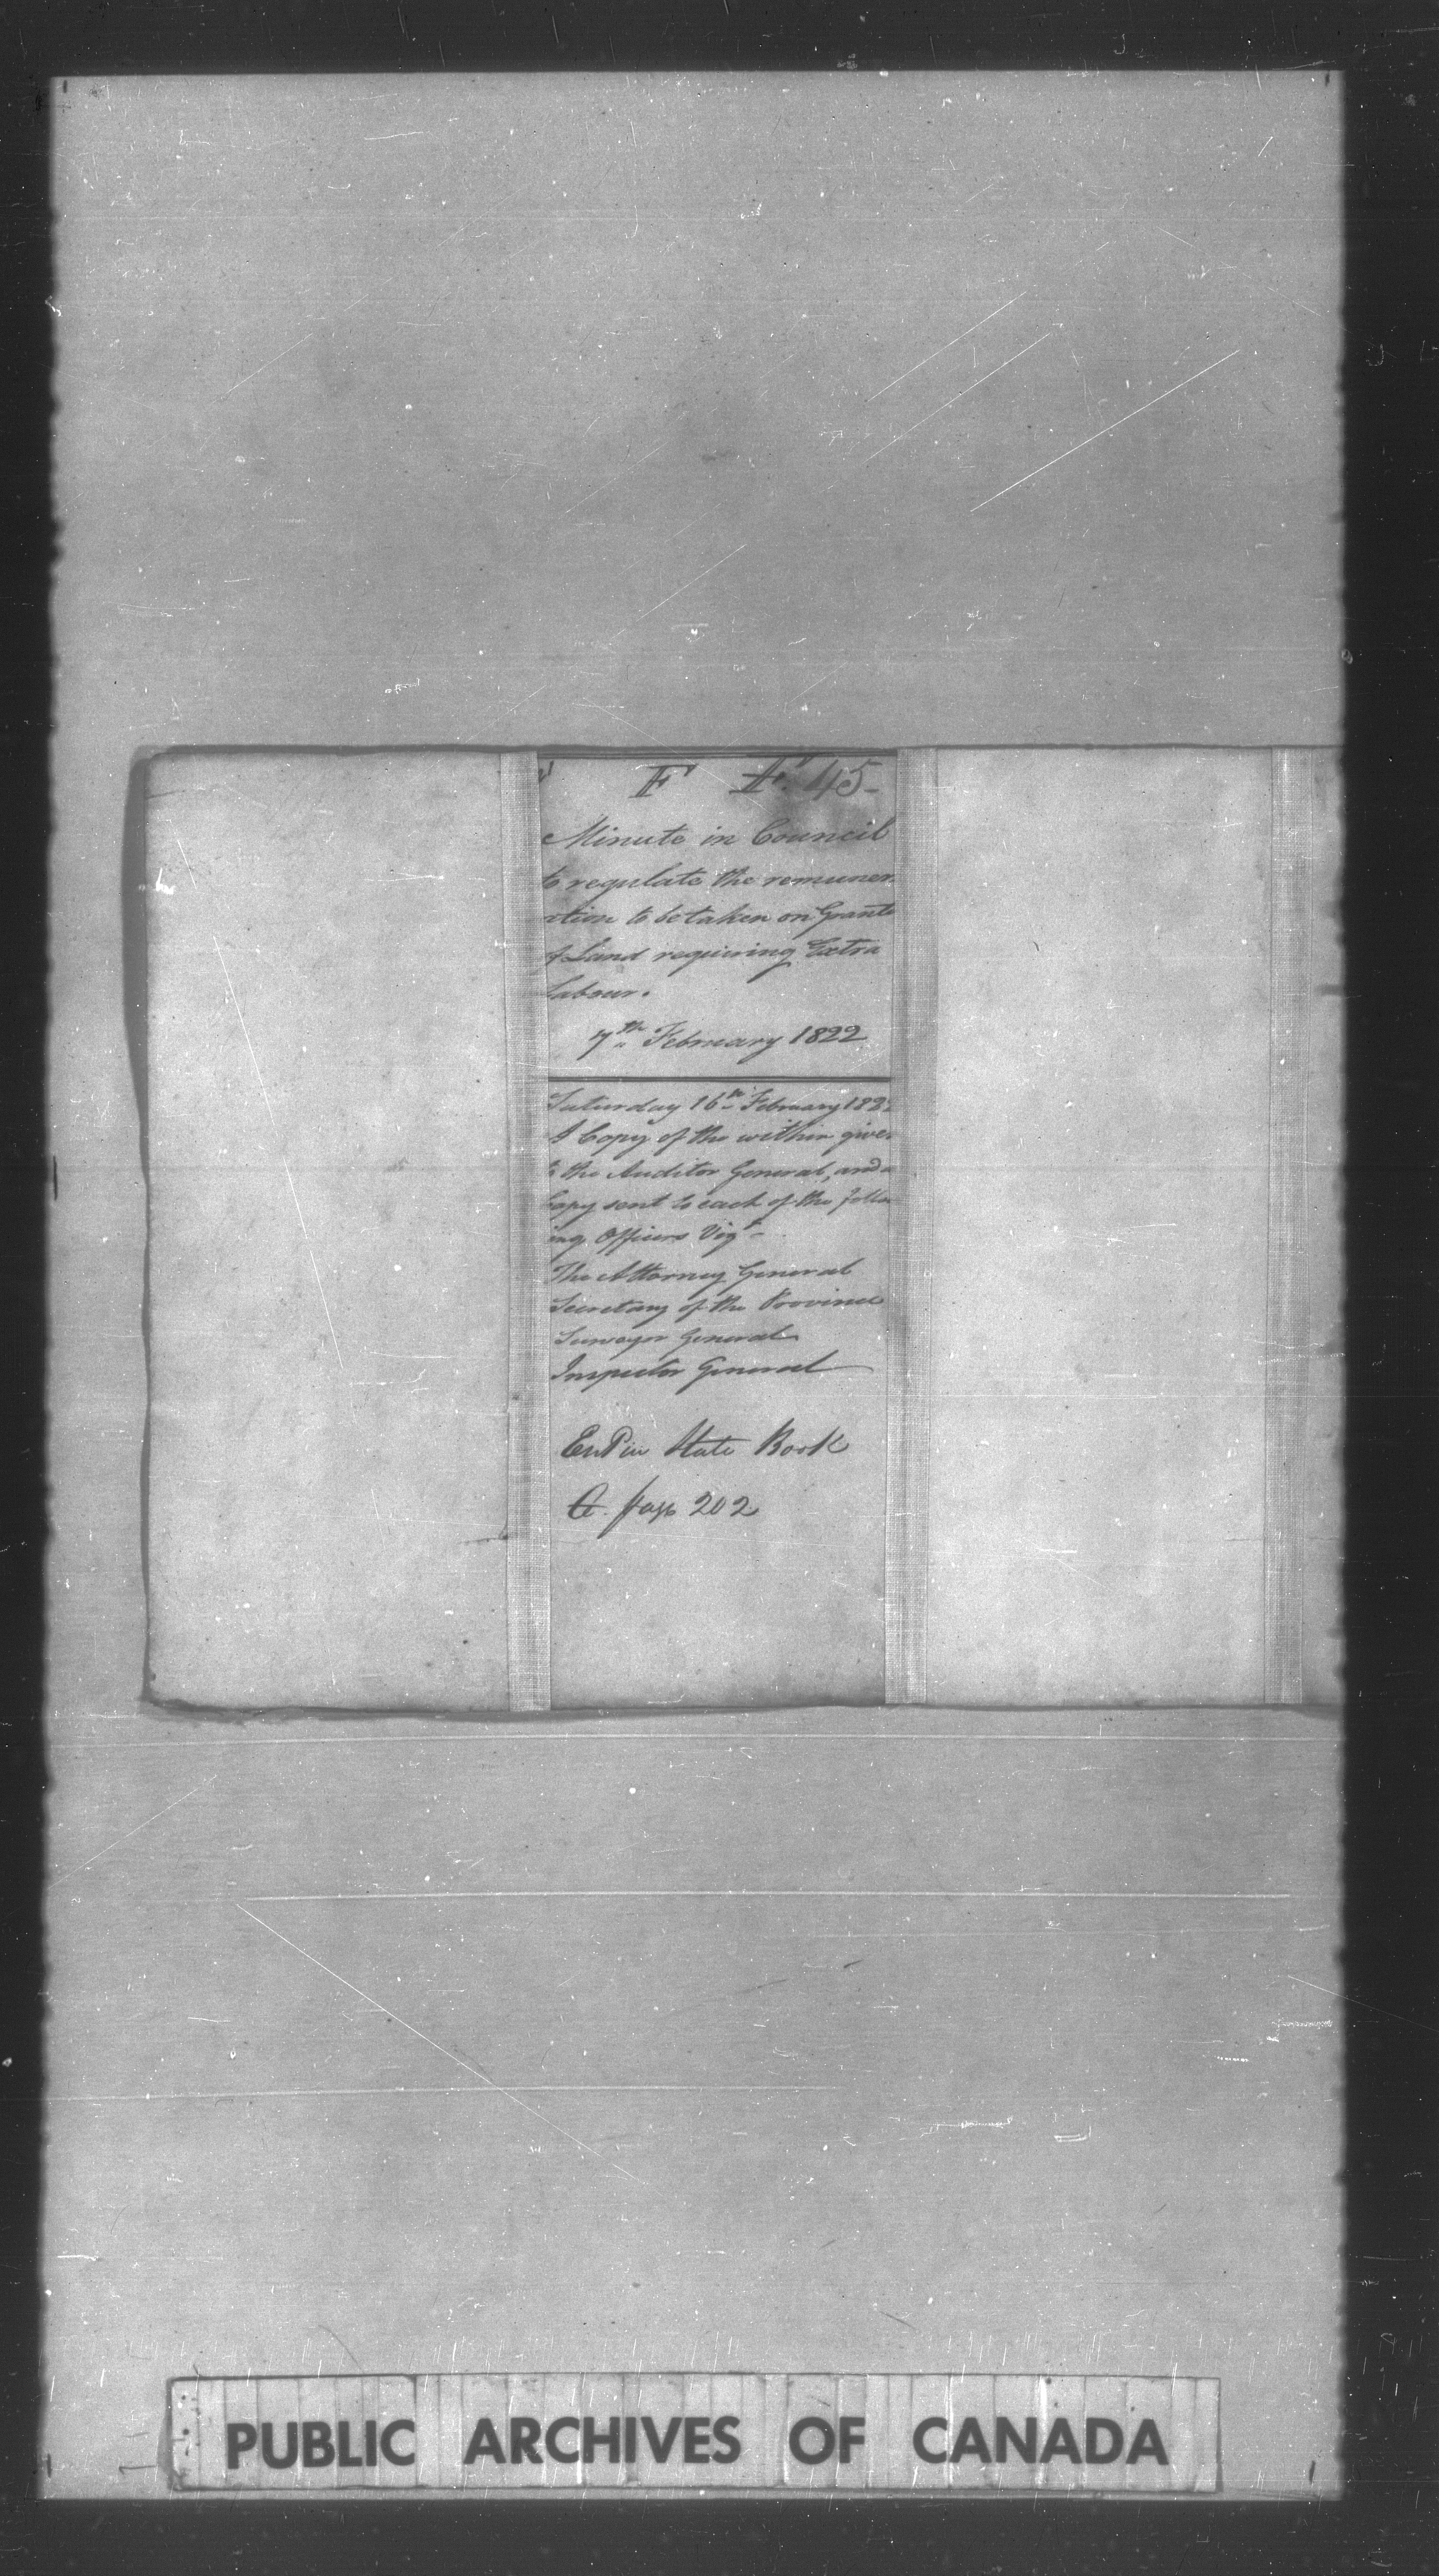 F F. 45-
Minute in Council
to regulate the remuner
ation to be taken on Grants
of Land requiring Extra
Labour.
7th February 1822
Saturday 16th February 182
A Copy of the within given
to the Auditor General, and a
Copy sent to each of the follow
ing Officers Vizt-
The Attorney General
Secretary of the Province
Surveyor General
Inspector General
Entd in State Book
G. page 202
PUBLIC ARCHIVES OF CANADA